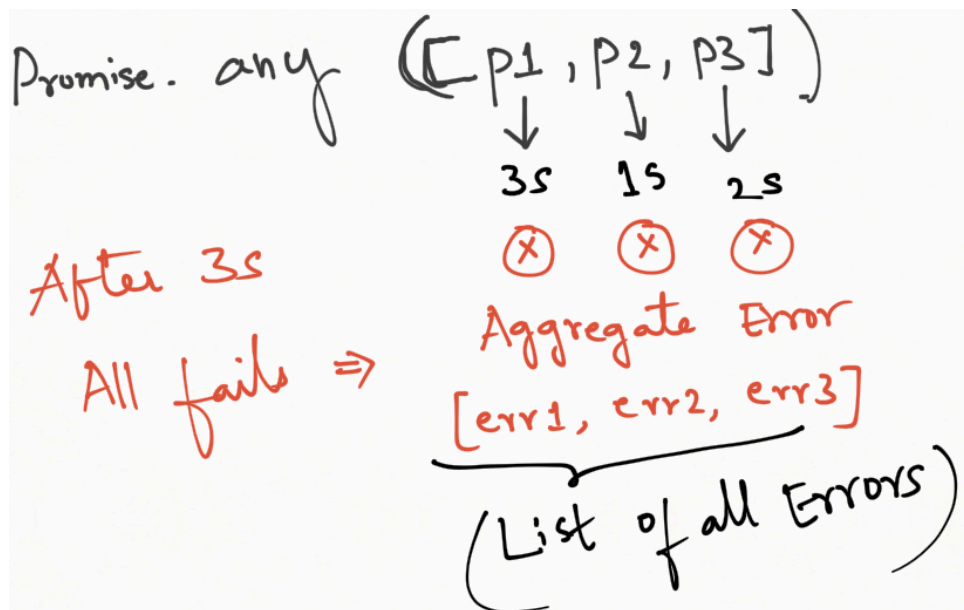 Promise. any ([p1, p2, p3])
3s 1s 2s
x x x
After 3s
Aggregate Error
All fails ⇒
[err1, err2, err3]
(List of all Errors)